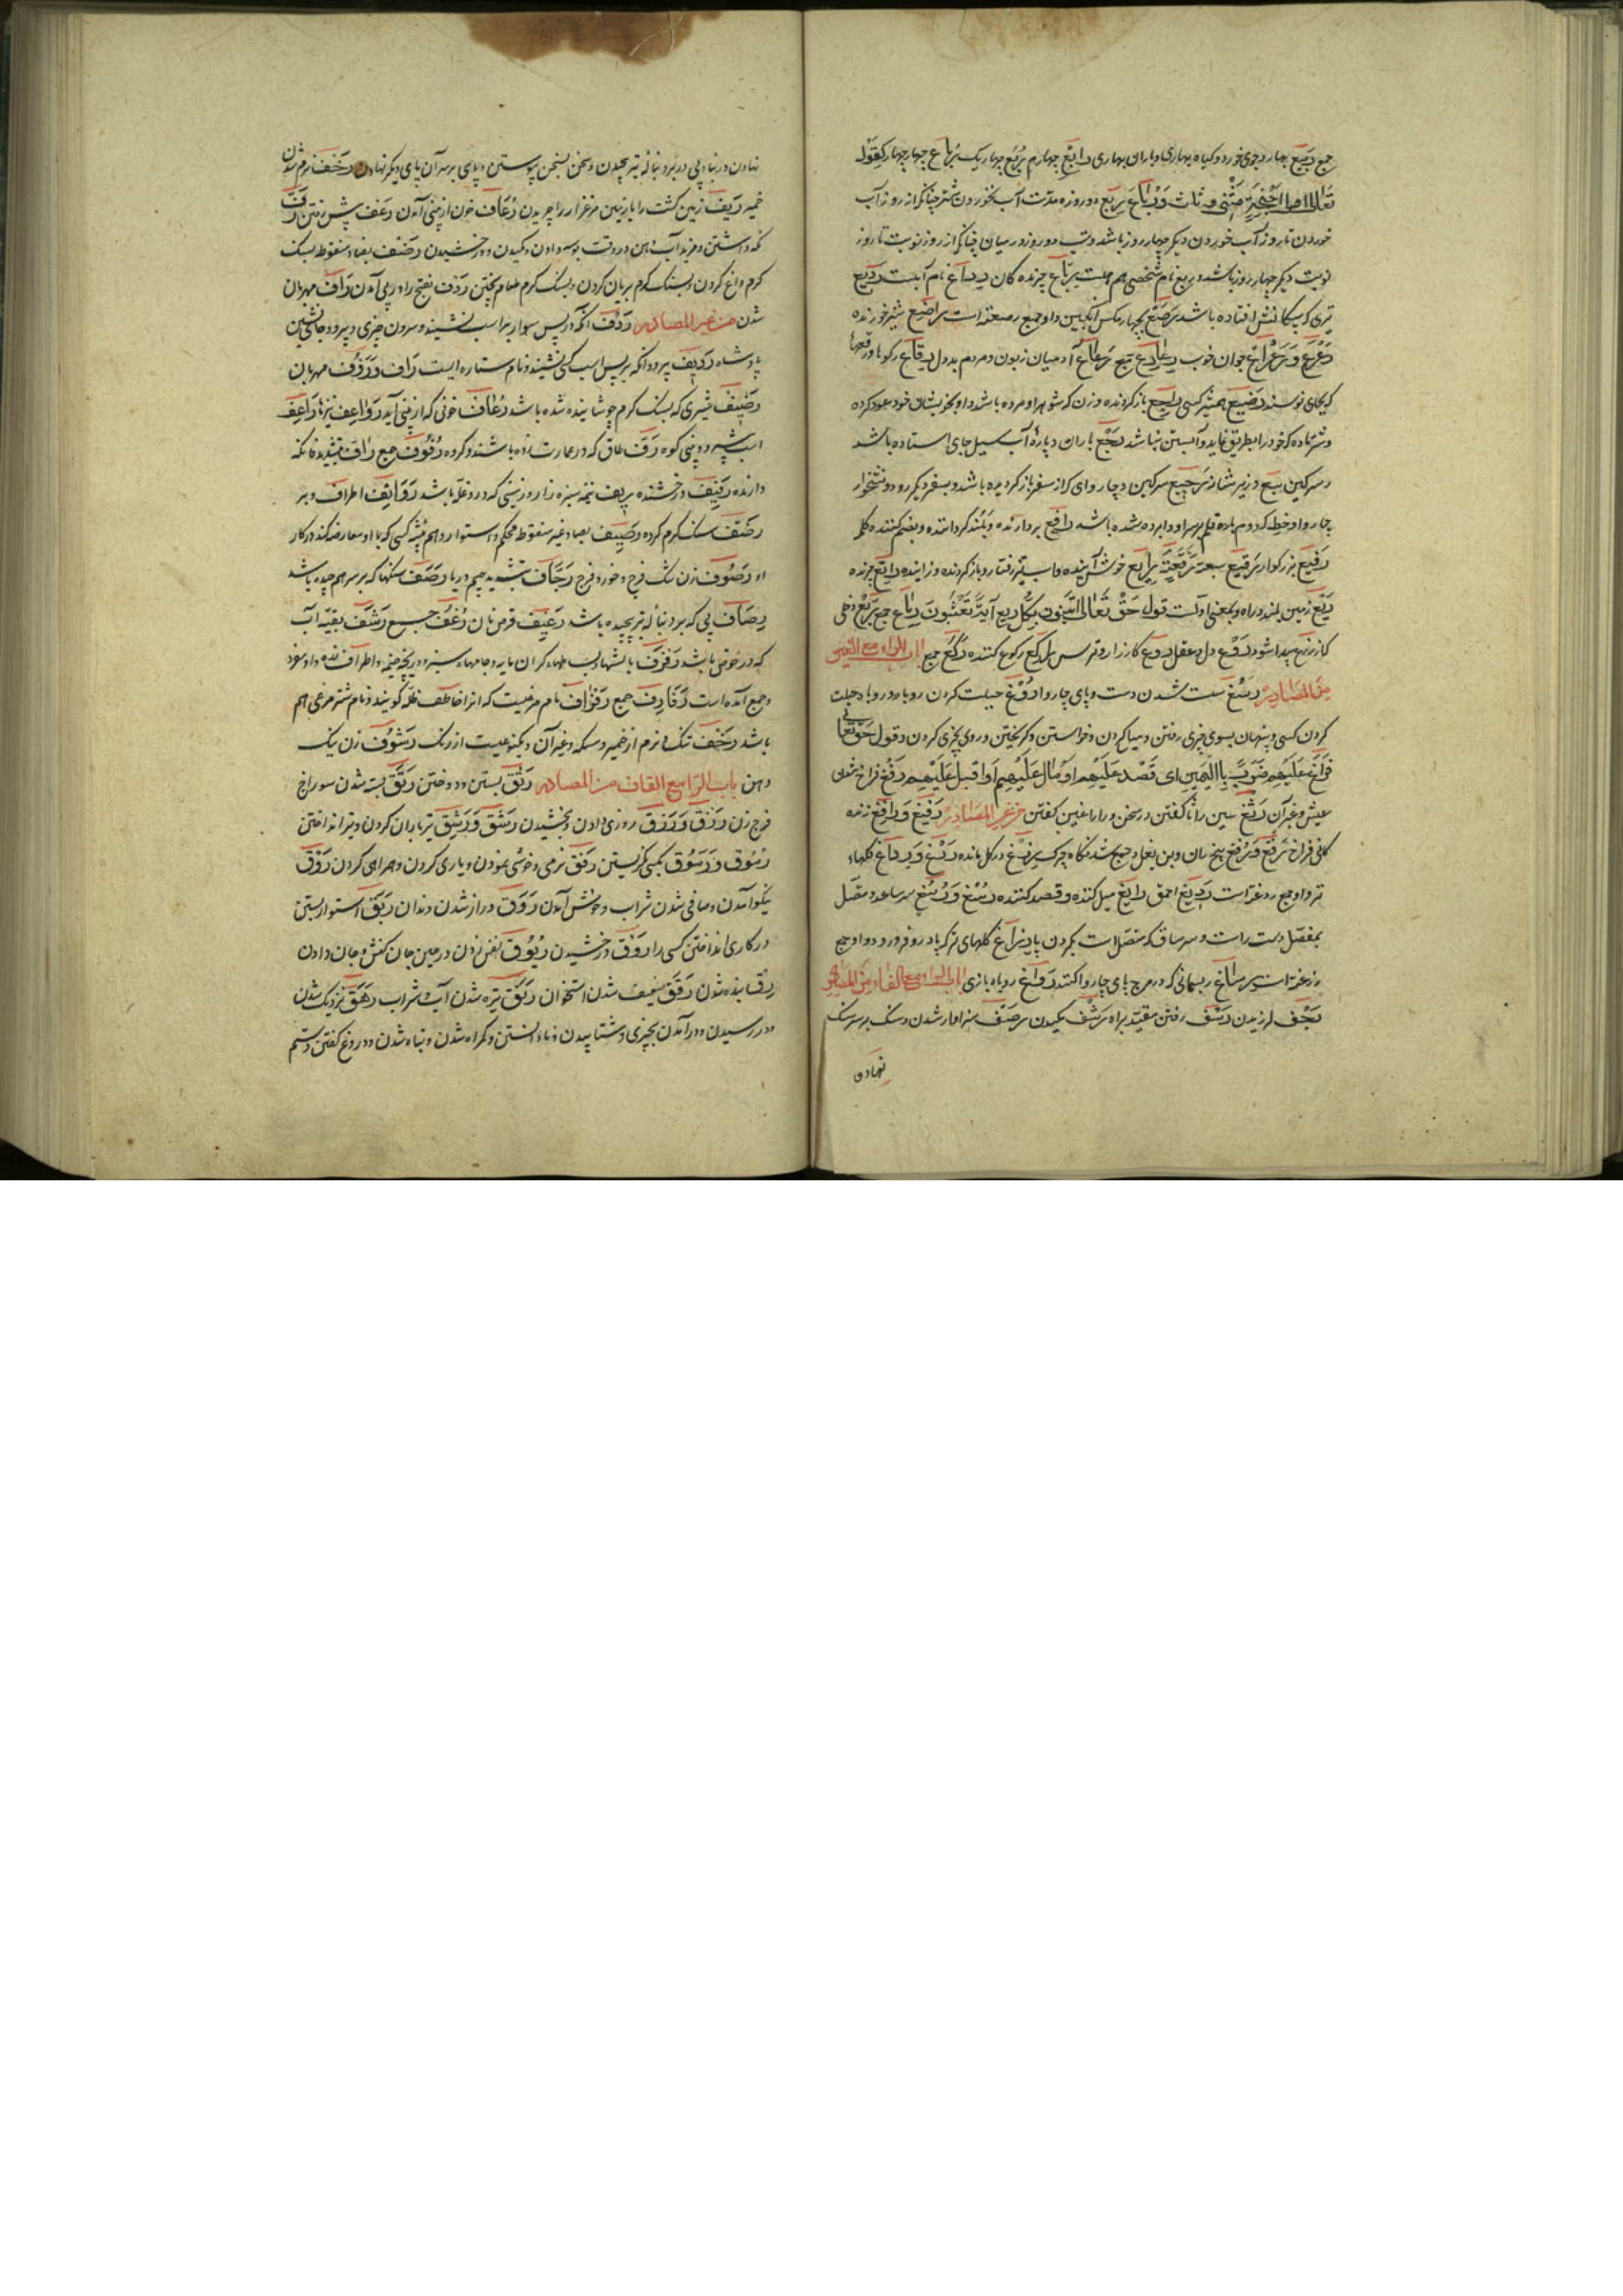 جمع رَبیع بهار و جوی خورد و گیاه بهاری و باران بهاری رابع چهارم رُبُع چهار یک رُباع چهار چهار کقوله
تعالی اولی اجنحة مثنی و ثلاث و رباع رِبع دو روزه مدت آب نخوردن شتر چنانکه از روز آب
خوردن تا روز آب خوردن دیگر چهار روز باشد و تب دو روز در میان چنانکه از روز نوبت تا روز
نوبت دیگر چهار روز باشد و ربع نام شخصی هم هست رِتاع چرنده کان رداغ نام آبیست ردیع
تیری که پیکانش افتاده باشد رَضَع بچهاء مکس انگبین و او جمع رضعة است راضع شیر خورنده
رَعرَع و رَعراع جوان خوب رعارع جمع رَعاع آدمیان زبون و مردم بددل رِقاع رکوها و رقعها
که بجای نویسند رضیع همشیر کسی راجع باز گردنده و زن که شوهر او مرده باشد و او بخویشان خود عود کرده
و شتر ماده که خود را بطریق نماید و آبستن نباشد رَجع باران و پارۀ آب سیل جای استاده باشد
و سرکین رجیع سرکین و چاروای که از سفر باز گردیده باشد و بسفر دیگر رود و نشخوار
چاروا و خط که دوم باره قلم بر سر او برده شده باشد رافع بردارنده و بلند گرداننده و بضم کننده کلمه
رفیع بزرکوار رقیع رایع خوش آینده و اسب تیز رفتار و باز گردنده و زاینده راتع چرنده
رِیع زمین بلند و راه و بمعنی اولست قول حق تعالی اتبنون بکل ریع آیة تعبثون رِیاع جمع رَیع دخلی
که از زرع پیدا شود رُوع دل و عقل رَوع کارزار و ترس راکع رکوع کننده رُکَّع جمع باب الراء مع الغین
من المصادر رَسَغ سست شدن دست و پای چاروا رَوغ حیلت کردن روباه و روباه حیلت
کردن کسی و پنهان بسوی چیزی رفتن و میل کردن و خواستن و گریختن و روی بچیزی کردن و قول حق تعالی
فراغ علیهم ضرباً بالیمین ای قصد علیهم او مال علیهم او اقبل علیهم رَفغ فراخ شدن
عیش و غیر آن رَثغ سین را ثا گفتن در سخن و را را غین گفتن من غیر المصادر رفیغ و رافغ زنده
کانی فراخ رَفغ و رُفغ بیخ ران و بن بغل و جمع شدنکاه چرک رزغ در کل مانده رَدغ و رِداغ کلهاء
تر و او جمع ردغة است ردیغ احمق رایغ میل کننده و قصد کننده رُسغ و رُسُغ سر ساعد و متصل
بمفصل دست راست و سر ساق که متصل است بکردن پا رِزاغ کلهای تر که پا درو فرو رود و او جمع
رزغة است رِساغ ریسمانی که در مرج پای چاروا کنند رَواغ روباه بازی باب الراء مع الفاء من المصادر
رَجف لرزیدن رَسف رفتن مقید براه رَشف مکیدن رَصف سزاوار شدن و سنک بر سر سنک
نهادن
نهادن در بنا و پی در برد بنالۀ تیر پیچیدن و سخن بسخن پیوستن و پای بر سر آن پای دیگر نهادن رَخَف نرم شدن
خمیر رَیف زمین کشت را با زمین مرغزار را چریدن رُعاف خون از بینی آمدن رَعَف پیش رفتن رَفّ
شدن من غیر المصادر رِدف آنکه در پس سوار بر اسب نشیند و سرون چیزی و پیرو و جانشین
پادشاه ردیف پیرو و آنکه بر پس اسب کسی نشیند و نام ستاره ایست راف و رَؤف مهربان
رضیف شیری که بسنک گرم جوشانیده شده باشد رُعاف خونی که از بینی آید رَواعِف نیزها راعف
اسب پیش رو و بینی کوه رَفّ طاق که در عمارت زده باشند و گروه رُفوف جمع رافّ بتشدید فا نکه
دارنده رفیف درخشنده ریف نیمه سبزه زار و زمینی که درو غله باشد رَوایف اطراف و بر
رَضف سنک گرم کرده رصیف بصاد غیر منقوط محکم و استوار و هم پیشه کسی که با او معارضه کند در کار
او رَصوف زن تنک فرج و خورد فرج رَجّاف بتشدید جیم دریا رَصَف سنکها که بر سر هم چیده باشد
رِصاف پی که بر دنبالۀ تیر پیچیده باشد رغیف قرص نان رُغُف جمع رَشَف بقیۀ آب
که در حوض باشد رَفرَف بالشها و بساطها کران مایه و جامهاء سبز و دریچه خیمه و اطراف
و جمع آمده است رَفارِف جمع رَفراف نام مرغیست که انرا خاطف ظله گویند و نام شتر مرغی هم
باشد رَخف تنک و نرم از خمیر و مسکه و غیر آن و یکنوعیست از رنک رَشوف زن نیک
دهن باب الراء مع القاف من المصادر رَتق بستن و دوختن رَتَق بسته شدن سوراخ
فرج زن رَزق و رِزق روزی دادن و بخشیدن رَشق و رَشیق تیر باران کردن و تیر انداختن
رُموق و رَموق بکسی نگریستن رِفق نرمی و خوشی نمودن و یاری کردن و همراهی کردن رَوق
نیکو آمدن و صافی شدن شراب و خوش آمدن رَوَق دراز شدن دندان رَبق استوار بستن
در کاری انداختن کسی را رَونق درخشیدن رُیوق نفس زدن در حین جان کنش و جان دادن
رِقّ بنده شدن رَقَق ضعیف شدن استخوان رَنق تیره شدن آب و شراب رَهَق نزدیک شدن
و در رسیدن و در آمدن بچیزی و شتابیدن و نادانستن و گمراه شدن و تباه شدن و دروغ گفتن و ستم